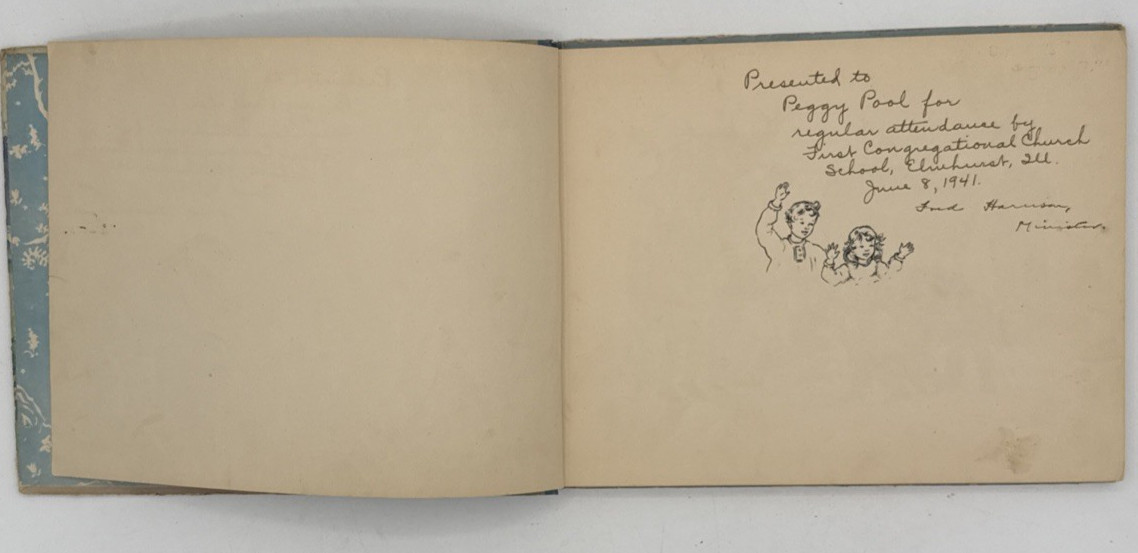 Presented to
Peggy Pool for
regular attendance by
First Congregational Church
School, Elmhurst, Ill.
June 8, 1941.
Fred Harrison,
Minister.